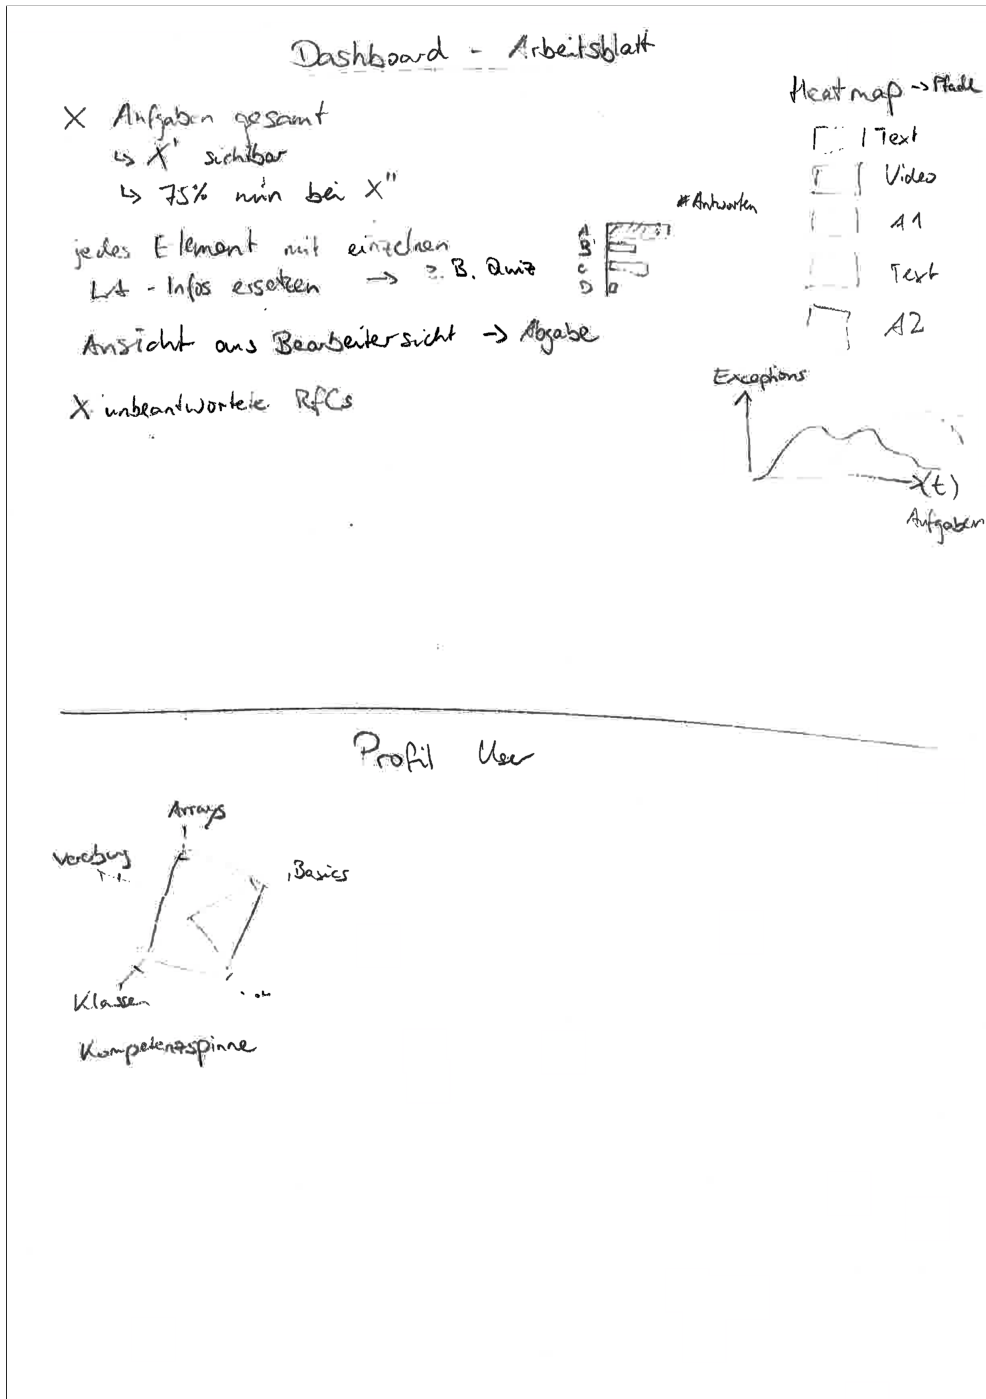 Dashboard - Arbeitsblatt
X Aufgaben gesamt
↳ X' sichtbar
↳ 75% min bei X"
jedes Element mit einzelnen
LA - Infos ersetzen → z. B. Quiz
# Antworten
A
B
C
D
Ansicht aus Bearbeitersicht → Abgabe
X unbeantwortete RfCs
Heatmap → Pfade
Text
Video
A1
Text
A2
Exceptions
(t)
Aufgaben
Profil User
Arrays
Vererbung
Basics
Klassen
...
Kompetenzspinne